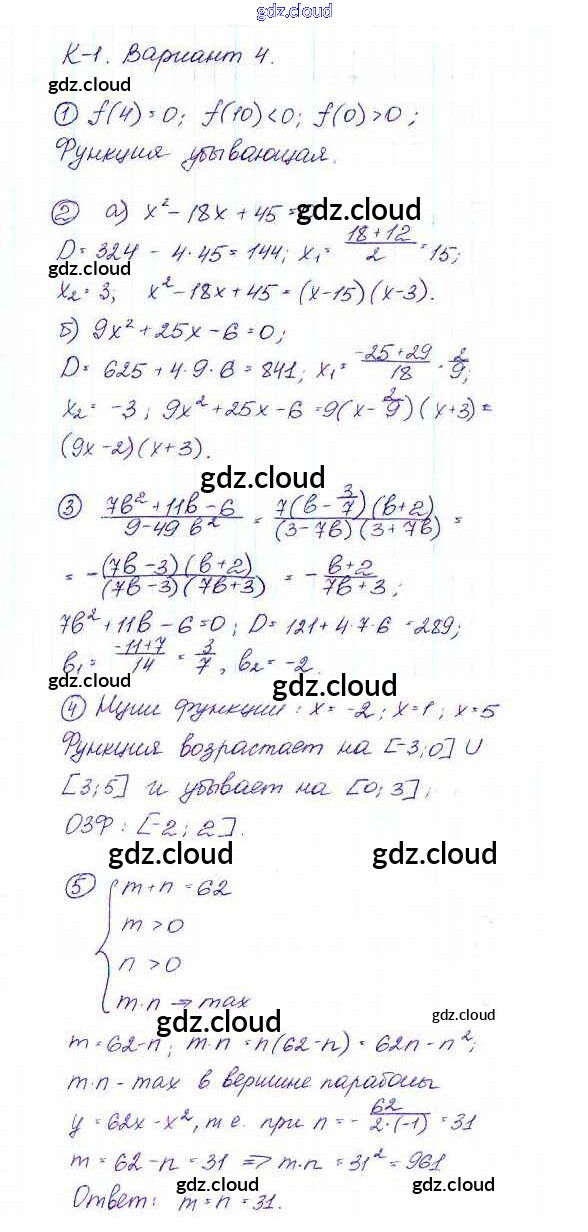 gdz.cloud
К-1. Вариант 4.
gdz.cloud
① f(4)=0; f(10)<0; f(0)>0;
Функция убывающая.
② а) x² - 18x + 45 = gdz.cloud
D = 324 - 4·45 = 144; x₁ = (18+12)/2 = 15;
gdz.cloud
x₂ = 3; x² - 18x + 45 = (x-15)(x-3).
б) 9x² + 25x - 6 = 0;
D = 625 + 4·9·6 = 841; x₁ = (-25+29)/18 = 2/9;
x₂ = -3; 9x² + 25x - 6 = 9(x - 2/9)(x+3) =
(9x-2)(x+3).
gdz.cloud
③ (7в² + 11в - 6)/(9 - 49в²) = 7(в - 3/7)(в+2)/(3-7в)(3+7в) =
= -(7в-3)(в+2)/(7в-3)(7в+3) = -(в+2)/(7в+3);
7в² + 11в - 6 = 0; D = 121 + 4·7·6 = 289;
в₁ = (-11+7)/14 = 3/7, в₂ = -2.
gdz.cloud
④ Нули функции: x = -2; x = 1; x = 5
Функция возрастает на [-3; 0] ∪
[3; 5] и убывает на [0; 3];
ОЗФ: [-2; 2].
gdz.cloud gdz.cloud
⑤ { m + n = 62
m > 0
n > 0
m·n → max
gdz.cloud
gdz.cloud
m = 62 - n; m·n = n(62-n) = 62n - n²;
m·n - max в вершине параболы
y = 62x - x², т.е. при n = - 62/(2·(-1)) = 31
m = 62 - n = 31 => m·n = 31² = 961
gdz.cloud
gdz.cloud
Ответ: m = n = 31.